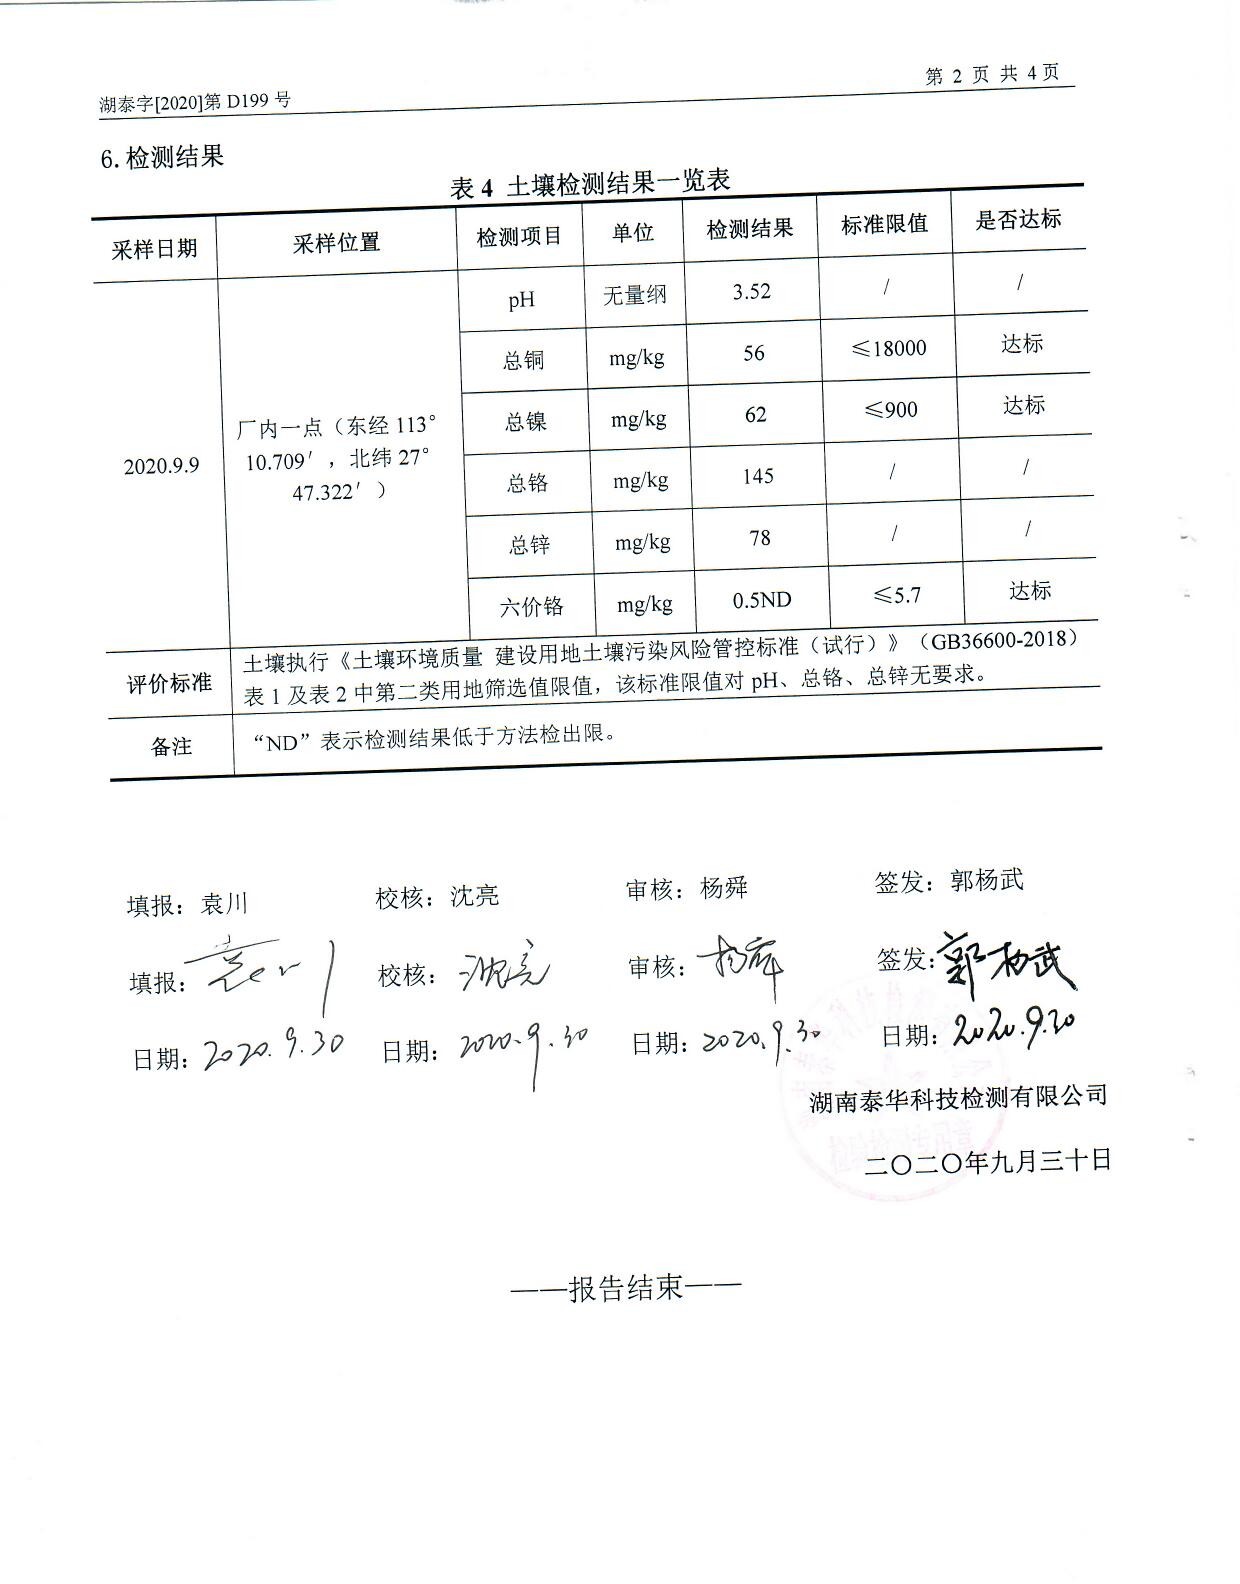 湖泰字[2020]第 D199 号
第 2 页 共 4 页
6.检测结果
表 4 土壤检测结果一览表
采样日期 采样位置 检测项目 单位 检测结果 标准限值 是否达标
2020.9.9
厂内一点（东经 113°
10.709′，北纬 27°
47.322′）
pH 无量纲 3.52 / /
总铜 mg/kg 56 ≤18000 达标
总镍 mg/kg 62 ≤900 达标
总铬 mg/kg 145 / /
总锌 mg/kg 78 / /
六价铬 mg/kg 0.5ND ≤5.7 达标
评价标准
土壤执行《土壤环境质量 建设用地土壤污染风险管控标准（试行）》（GB36600-2018）
表 1 及表 2 中第二类用地筛选值限值，该标准限值对 pH、总铬、总锌无要求。
备注 “ND”表示检测结果低于方法检出限。
填报：袁川 校核：沈亮 审核：杨舜 签发：郭杨武
填报：袁川 校核：沈亮 审核：杨舜 签发：郭杨武
日期：2020.9.30 日期：2020.9.30 日期：2020.9.30 日期：2020.9.30
湖南泰华科技检测有限公司
二〇二〇年九月三十日
——报告结束——